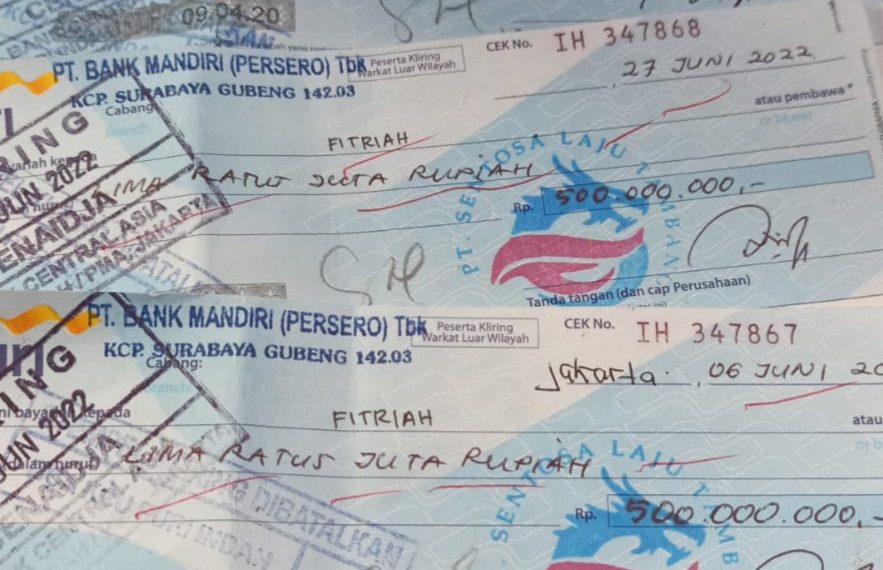 09.04.20
PT. BANK MANDIRI (PERSERO) Tbk
Peserta Kliring
Warkat Luar Wilayah
CEK No. IH 347868
KCP. SURABAYA GUBENG 142.03
27 JUNI 2022
Cabang
Branch:
atau pembawa *
or bearer
FITRIAH
LIMA RATUS JUTA RUPIAH
Rp. 500.000.000,-
PT. SENTOSA LAJU
JUN 2022
CENTRAL ASIA
JAKARTA
SH
Tanda tangan (dan cap Perusahaan)
PT. BANK MANDIRI (PERSERO) Tbk
Peserta Kliring
Warkat Luar Wilayah
CEK No. IH 347867
KCP. SURABAYA GUBENG 142.03
Cabang:
Branch:
Jakarta, 06 JUNI 20
kepada
FITRIAH
atau
or b
LIMA RATUS JUTA RUPIAH
Rp. 500.000.000,-
SENTOSA LAJU
JUN 2022
DIBATALKAN
INDAH